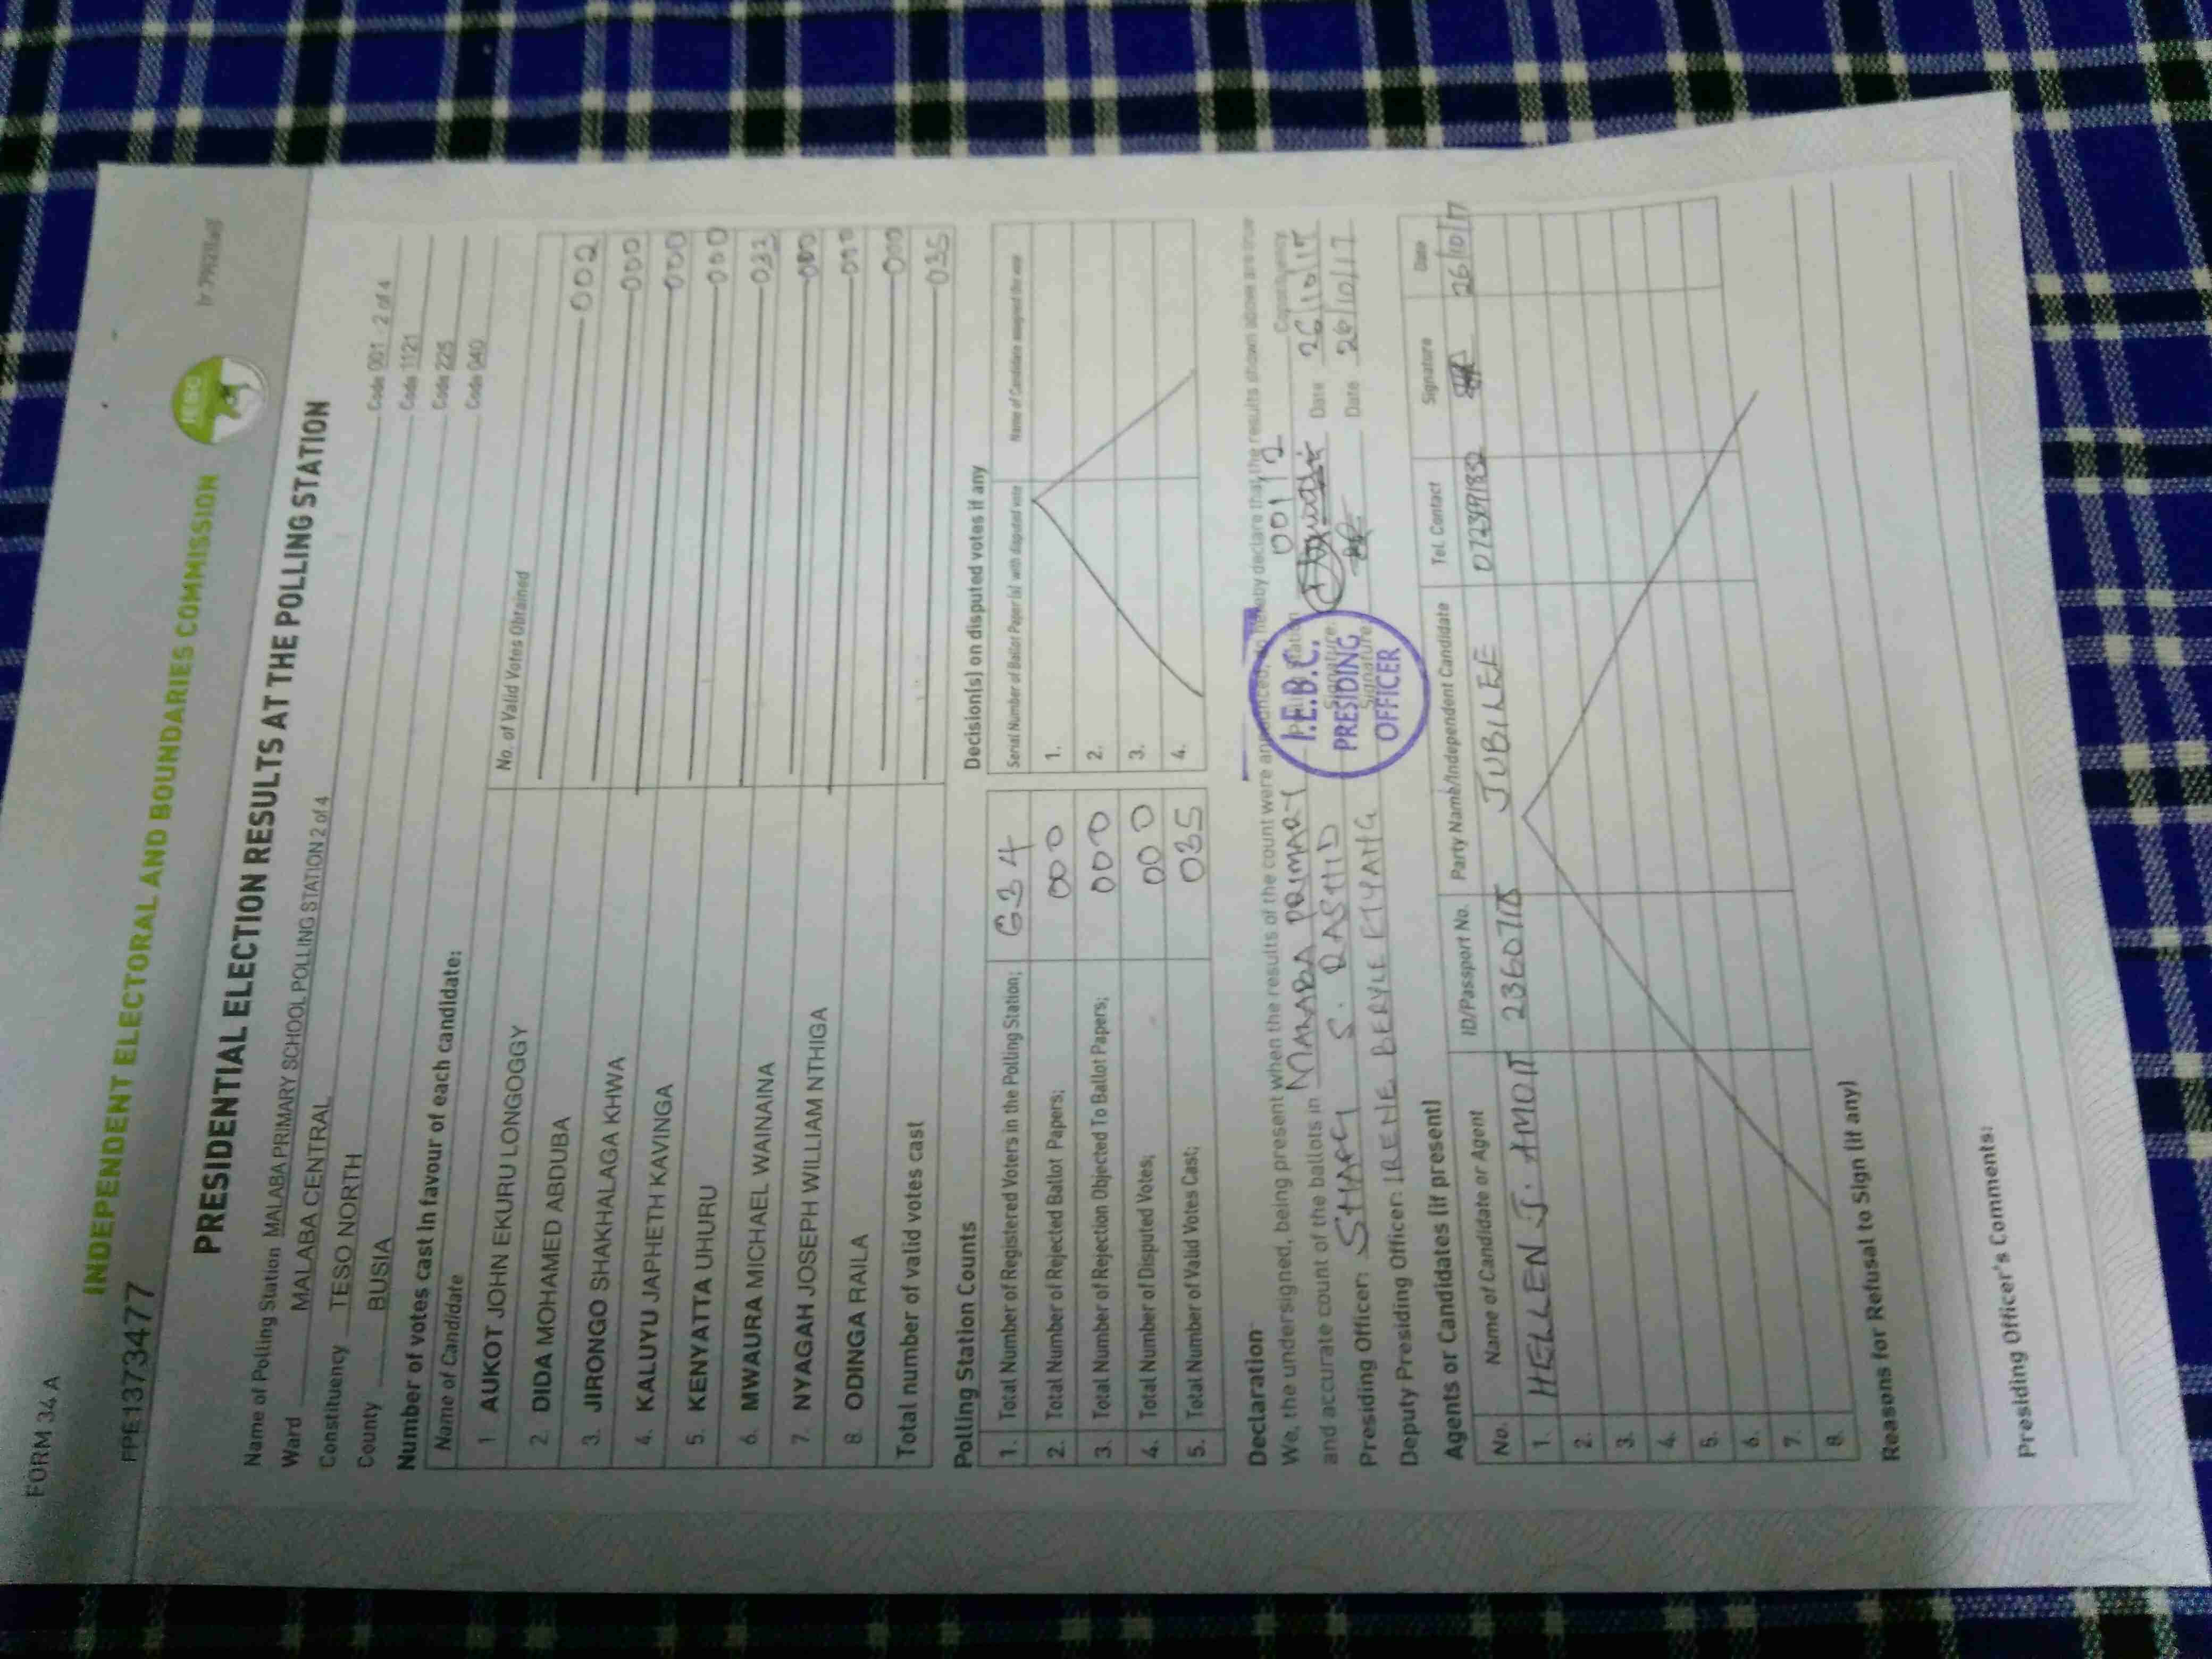 FORM 34 A
INDEPENDENT ELECTORAL AND BOUNDARIES COMMISSION
IEBC
PRESIDENTIAL ELECTION RESULTS AT THE POLLING STATION
Name of Polling Station MALABA PRIMARY SCHOOL POLLING STATION 2 of 4 Code 001 - 2 of 4
Ward MALABA CENTRAL Code 1121
Constituency TESO NORTH Code 225
County BUSIA Code 040
Number of votes cast in favour of each candidate:
Name of Candidate No. of Valid Votes Obtained
1 AUKOT JOHN EKURU LONGOGGY 002
2. DIDA MOHAMED ABDUBA 000
3. JIRONGO SHAKHALAGA KHWA 000
4. KALUYU JAPHETH KAVINGA 000
5. KENYATTA UHURU 033
6. MWAURA MICHAEL WAINAINA 000
7. NYAGAH JOSEPH WILLIAM NTHIGA 000
8. ODINGA RAILA 000
Total number of valid votes cast 035
Polling Station Counts
1. Total Number of Registered Voters in the Polling Station; 634
2. Total Number of Rejected Ballot Papers; 000
3. Total Number of Rejection Objected To Ballot Papers; 000
4. Total Number of Disputed Votes; 000
5. Total Number of Valid Votes Cast; 035
Decision(s) on disputed votes if any
Serial Number of Ballot Paper (s) with disputed vote Name of Candidate assigned the vote
1.
2.
3.
4.
Declaration
We, the undersigned, being present when the results of the count were announced, do hereby declare that the results shown above are true
and accurate count of the ballots in MALABA PRIMARY Polling Station 001 / 2 Constituency
Presiding Officer: SHAFI S. RASHID Signature Date 26/10/17
Deputy Presiding Officer: IRENE BERYLE Signature Date 26/10/17
I.E.B.C.
PRESIDING
OFFICER
Agents or Candidates (if present)
No. Name of Candidate or Agent ID/Passport No. Party Name/Independent Candidate Tel. Contact Signature Date
1. HELLEN J. JUBILEE 26/10/17
2.
3.
4.
5.
6.
7.
8.
Reasons for Refusal to Sign (if any)
Presiding Officer's Comments: